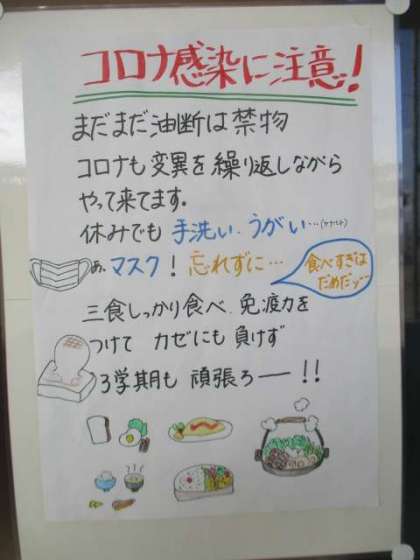 コロナ感染に注意!
まだまだ油断は禁物
コロナも変異を繰り返しながら
やって来てます。
休みでも 手洗い、うがい…
あ、マスク! 忘れずに…
食べすぎは
だめだゾ~
三食しっかり食べ、免疫力を
つけて カゼにも 負けず
3学期も 頑張ろー!!